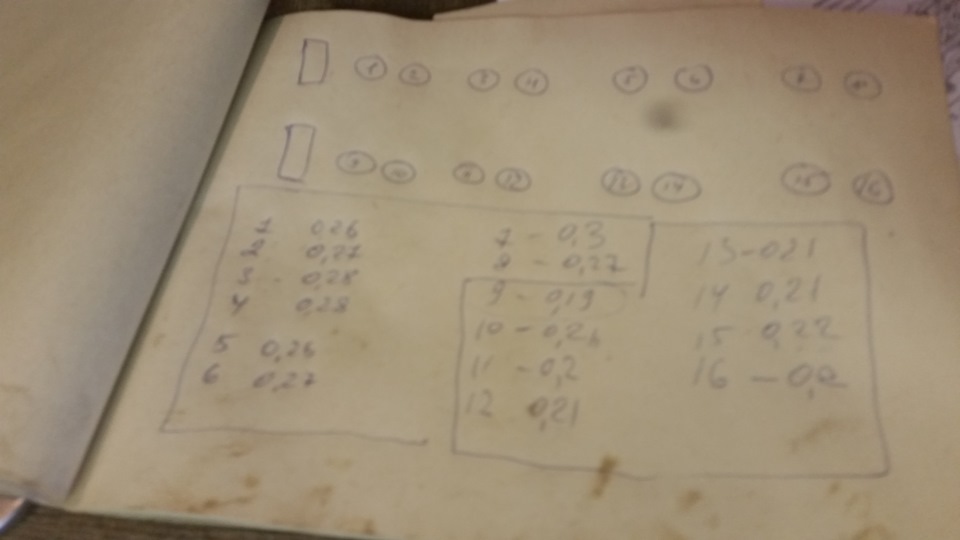 1 2 3 4 5 6 7
9 10 11 12 13 14 15 16
1 0,26
2 0,27
3 - 0,28
4 0,28
5 0,26
6 0,27
7 - 0,3
8 - 0,27
9 - 0,19
10 - 0,21
11 - 0,2
12 0,21
13 - 021
14 0,21
15 0,22
16 - 0,2